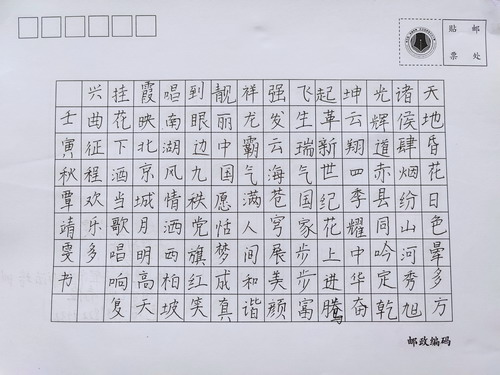 贴 邮
票 处
天地昏花日色晕多方
诸侯肆烟纷山河秀旭
光辉道赤县同吟定乾
坤云翔四季耀中华奋
起革新世纪花上进腾
飞生瑞气国家步步富
强发云海苍穹展美颜
祥龙霸气满人间和谐
靓丽中国愿恬梦成真
到眼边九秩党旗红笑
唱南湖风情洒西柏坡
霞映北京城月明高天
挂花下洒当歌唱响复
兴曲征程欢乐多
壬寅秋覃靖雯书
邮政编码